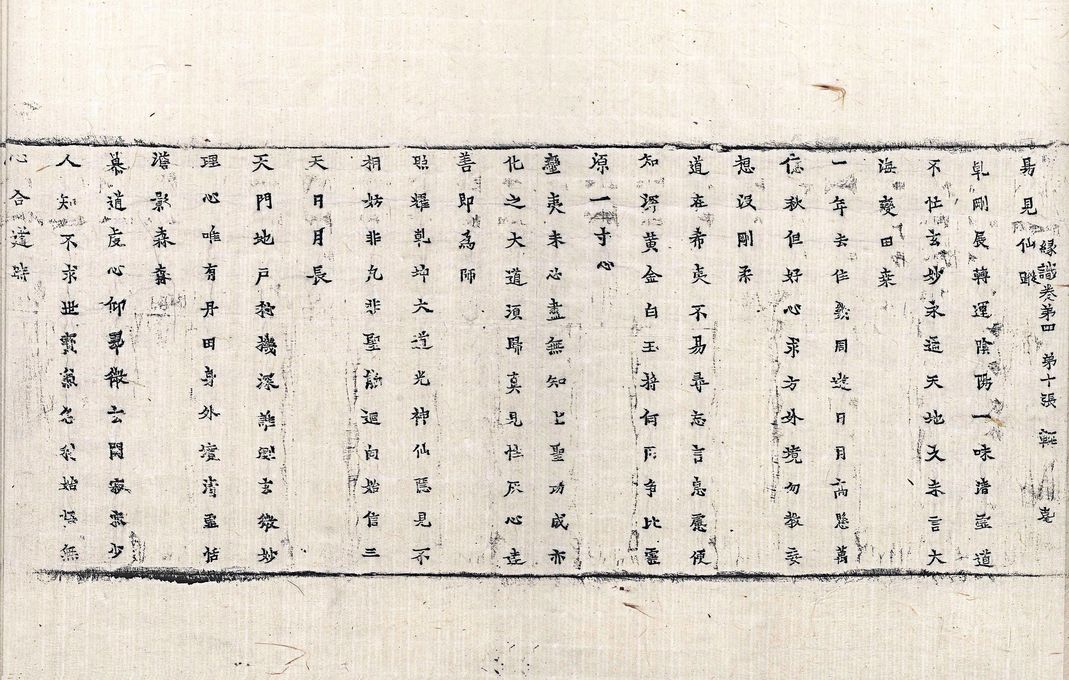 易見仙蹤
緣識卷第四　第十張
乹剛辰轉運陰陽一味清虛道
不任玄妙永遊天地久未言大
海變田桒
一年去住幾周遊日月高懸萬
億秋但好心求方外境勿教妄
想沒剛柔
道在希夷不易尋忘言息慮便
知深黄金白玉將何用争比靈
源一寸心
蠻夷未必盡無知上聖功成亦
化之大道須歸真見性灰心達
善即為師
照耀乹坤大道光神仙隱見不
拘姑非凢非聖静迴向始信三
天日月長
天門地戶於機深誰測玄微妙
理心唯有丹田身外境清虛恬
澹影森森
慕道虔心仰翠微玄關寂寞少
人知不求世寳兼名利始悟無
心合道時